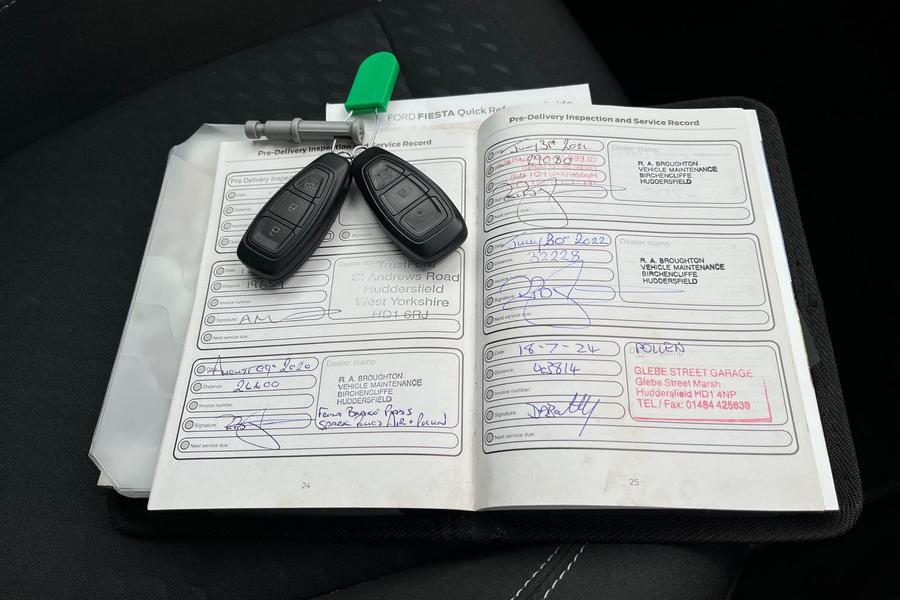 FORD FIESTA Quick
Pre-Delivery Inspection and Service Record
Pre-Delivery
Date:
Distance:
Signature:
TrustFord
St Andrews Road
Huddersfield
West Yorkshire
HD1 6RJ
Invoice number:
Signature: AM
Next service due:
Date: August 09th 2020
Distance: 26600
Invoice number:
Signature:
Next service due:
Dealer stamp
R. A. BROUGHTON
VEHICLE MAINTENANCE
BIRCHENCLIFFE
HUDDERSFIELD
Front Brake Pads
Spark Plugs Air + Pollen
24
Pre-Delivery Inspection and Service Record
Date: 2021
29080
Next service due:
Dealer stamp
R. A. BROUGHTON
VEHICLE MAINTENANCE
BIRCHENCLIFFE
HUDDERSFIELD
Date: 2022
Distance: 32228
Invoice number:
Signature:
Next service due:
Dealer stamp
R. A. BROUGHTON
VEHICLE MAINTENANCE
BIRCHENCLIFFE
HUDDERSFIELD
Date: 18-7-24
Distance:
Invoice number:
Signature:
Next service due:
POLLEN
GLEBE STREET GARAGE
Glebe Street Marsh
Huddersfield HD1 4NP
TEL / Fax: 01484 425639
25